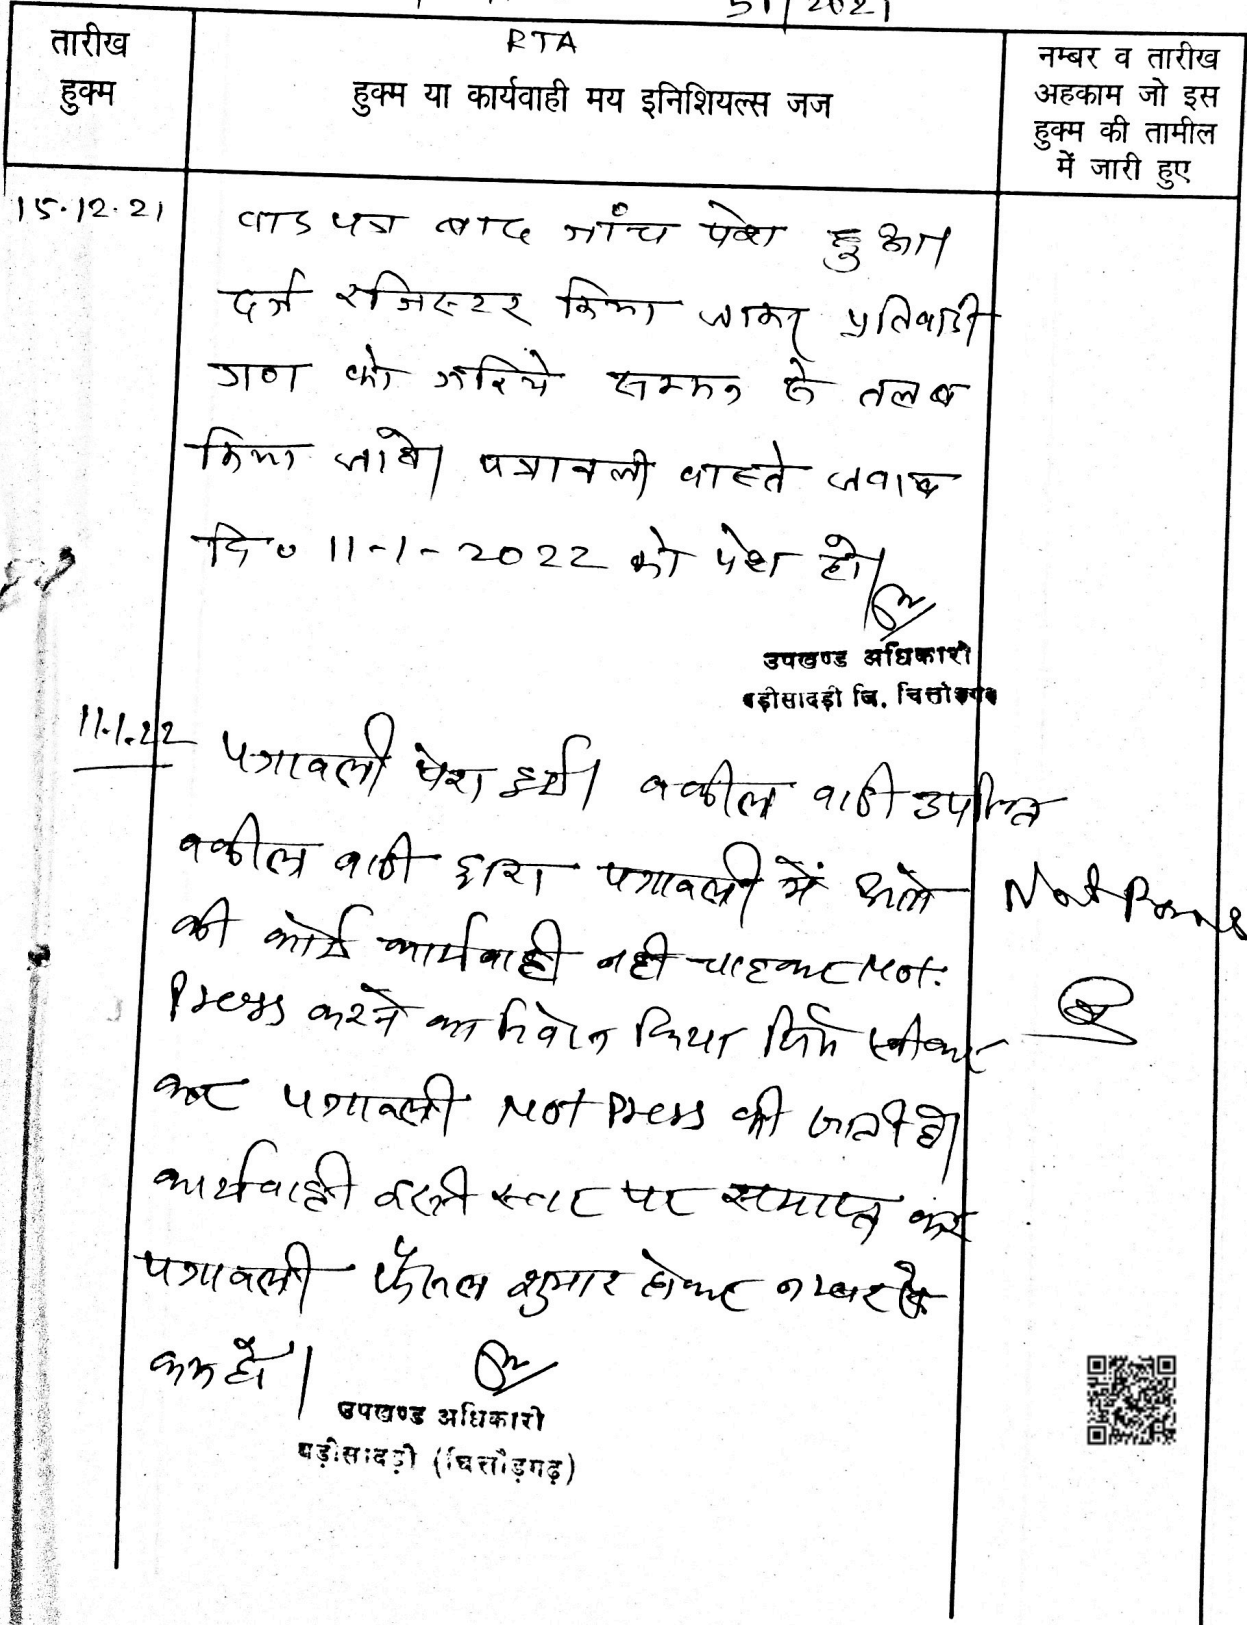 51/2021
RTA
तारीख
हुक्म
हुक्म या कार्यवाही मय इनिशियल्स जज
नम्बर व तारीख
अहकाम जो इस
हुक्म की तामील
में जारी हुए
15.12.21
वाद पत्र बाद जाँच पेश हुआ।
दर्ज रजिस्टर किया जाकर प्रतिवादी
गण को जरिये सम्मन के तलब
किया जावे। पत्रावली वास्ते जवाब
दि० 11-1-2022 को पेश हो।
उपखण्ड अधिकारी
बड़ीसादड़ी जि. चित्तोड़गढ़
11.1.22
पत्रावली पेश हुई। वकील वादी उपस्थित
वकील वादी द्वारा पत्रावली में आगे
की कोई कार्यवाही नही चाहकर Not
Press करने का निवेदन किया जिसे स्वीकार
कर पत्रावली Not Press की जाती है।
कार्यवाही इसी स्तर पर समाप्त कर
पत्रावली फैसल शुमार होकर नम्बर से
कम हो।
Not Press
उपखण्ड अधिकारी
बड़ीसादड़ी (चित्तौड़गढ़)